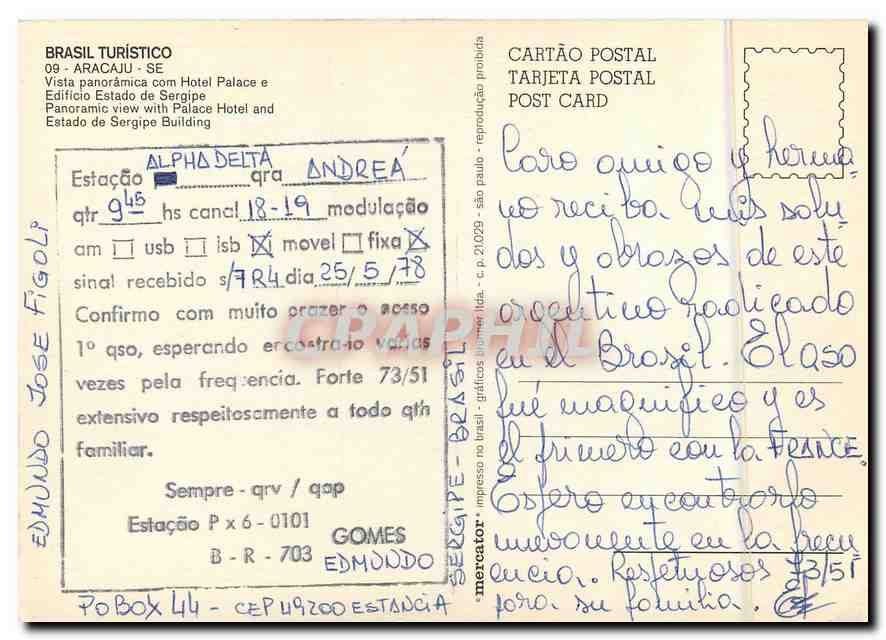 BRASIL TURÍSTICO
09 - ARACAJU - SE
Vista panorâmica com Hotel Palace e
Edifício Estado de Sergipe
Panoramic view with Palace Hotel and
Estado de Sergipe Building
Estação ALPHA DELTA qra ANDREÁ
qtr 9 45 hs canal 18-19 modulação
am usb isb X movel fixa X
sinal recebido s/7 R4 dia 25/5/78
Confirmo com muito prazer o nosso
1º qso, esperando encontra-io varias
vezes pela frequencia. Forte 73/51
extensivo respeitosamente a todo qth
familiar.
Sempre - qrv / qap
Estação P x 6 - 0101
GOMES
B - R - 703 EDMUNDO
EDMUNDO JOSE FIGOLI
PO BOX 44 - CEP 49200 ESTANCIA
SERGIPE - BRASIL
mercator® impresso no brasil - gráficos brunner ltda. - c. p. 21.029 - são paulo - reprodução proibida
CARTÃO POSTAL
TARJETA POSTAL
POST CARD
Caro amigo y herma-
no reciba mis salu-
dos y abrazos de este
argentino radicado
en el Brasil. El qso
fué magnifico y es
el primero con la FRANCE.
Espero encontrarlo
nuevamente en la frecu
encia.. Respetuosos 73/51
para su familia.
CPAPHIL